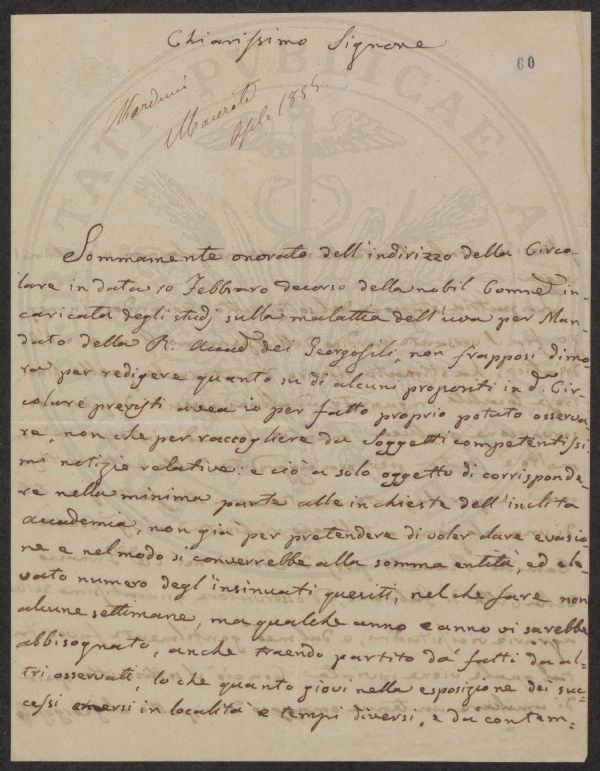 Chiarissimo Signore
60
Nardini
Macerata
Aple 1855.
Sommamente onorato dell'indirizzo della Circo-
lare in data 10 Febbraro decorso della nobil Comne in-
caricata degli studj sulla malattia dell'uva per Man-
dato della R. Accad. dei Georgofili, non frapposi dimo
ra per redigere quanto su di alcuni propositi in da Cir-
colare previsti avea io per fatto proprio potuto osserva
re, non che per raccogliere da Soggetti competentissi
mi notizie relative: e ciò a solo oggetto di corrisponde
re nella minima parte alle inchieste dell'inclita
Accademia, non già per pretendere di voler dare evasio
ne e nel modo si converrebbe alla somma entità, ed ele
vato numero degl'insinuati quesiti, nel che fare non
alcune settimane, ma qualche anno e anno vi sarebbe
abbisognato, anche traendo partito da' fatti da al-
tri osservati, lo che quanto giovi nella esposizione dei suc-
cessi emersi in località e tempi diversi, e da contem-